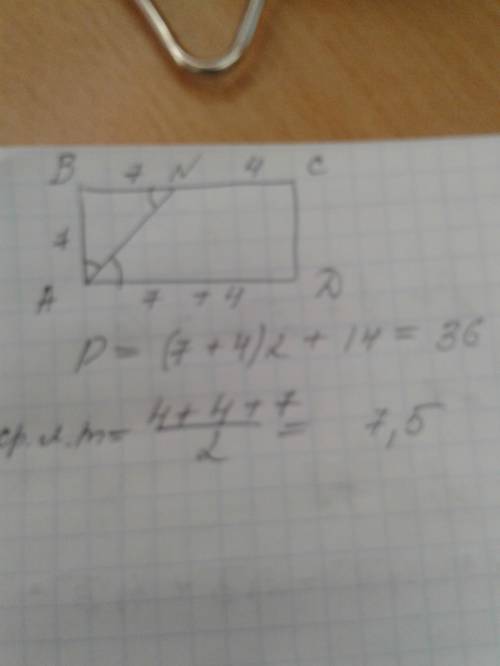 B 7 N 4 C
7
A 7 + 4 D
P = (7 + 4)2 + 14 = 36
ср.л.т = 4 + 4 + 7 / 2 = 7,5